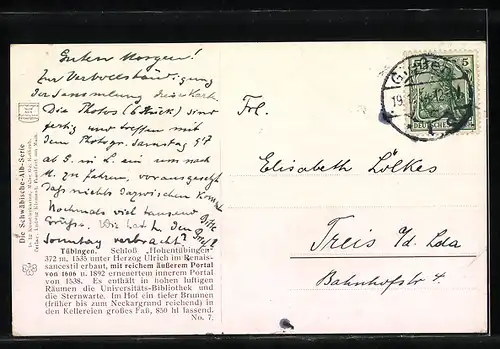 Guten Morgen!
Zur Vervollständigung
der Sammlung diese Karte.
Die Photos (6 Stück) sind
fertig und treffen mit
dem Photogr. Samstag
ab S. in L. ein um nach
M. zu fahren, vorausgesetzt
daß nichts dazwischen kommt.
Nochmals viel tausend
Grüsse. Wie hat L. den
Sonntag verbracht? Bitte
Brief!
Die Schwäbische-Alb-Serie
Tübingen. Schloß „Hohentübingen"
372 m. 1535 unter Herzog Ulrich im Renais-
sancestil erbaut, mit reichem äußerem Portal
von 1606 u. 1892 erneuertem innerem Portal
von 1538. Es enthält in hohen luftigen
Räumen die Universitäts-Bibliothek und
die Sternwarte. Im Hof ein tiefer Brunnen
(früher bis zum Neckargrund reichend) in
den Kellereien großes Faß, 850 hl fassend.
No. 7.
Frl.
Elisabeth Lölkes
Treis a/d. Lda
Bahnhofstr. 4.
5
DEUTSCHES